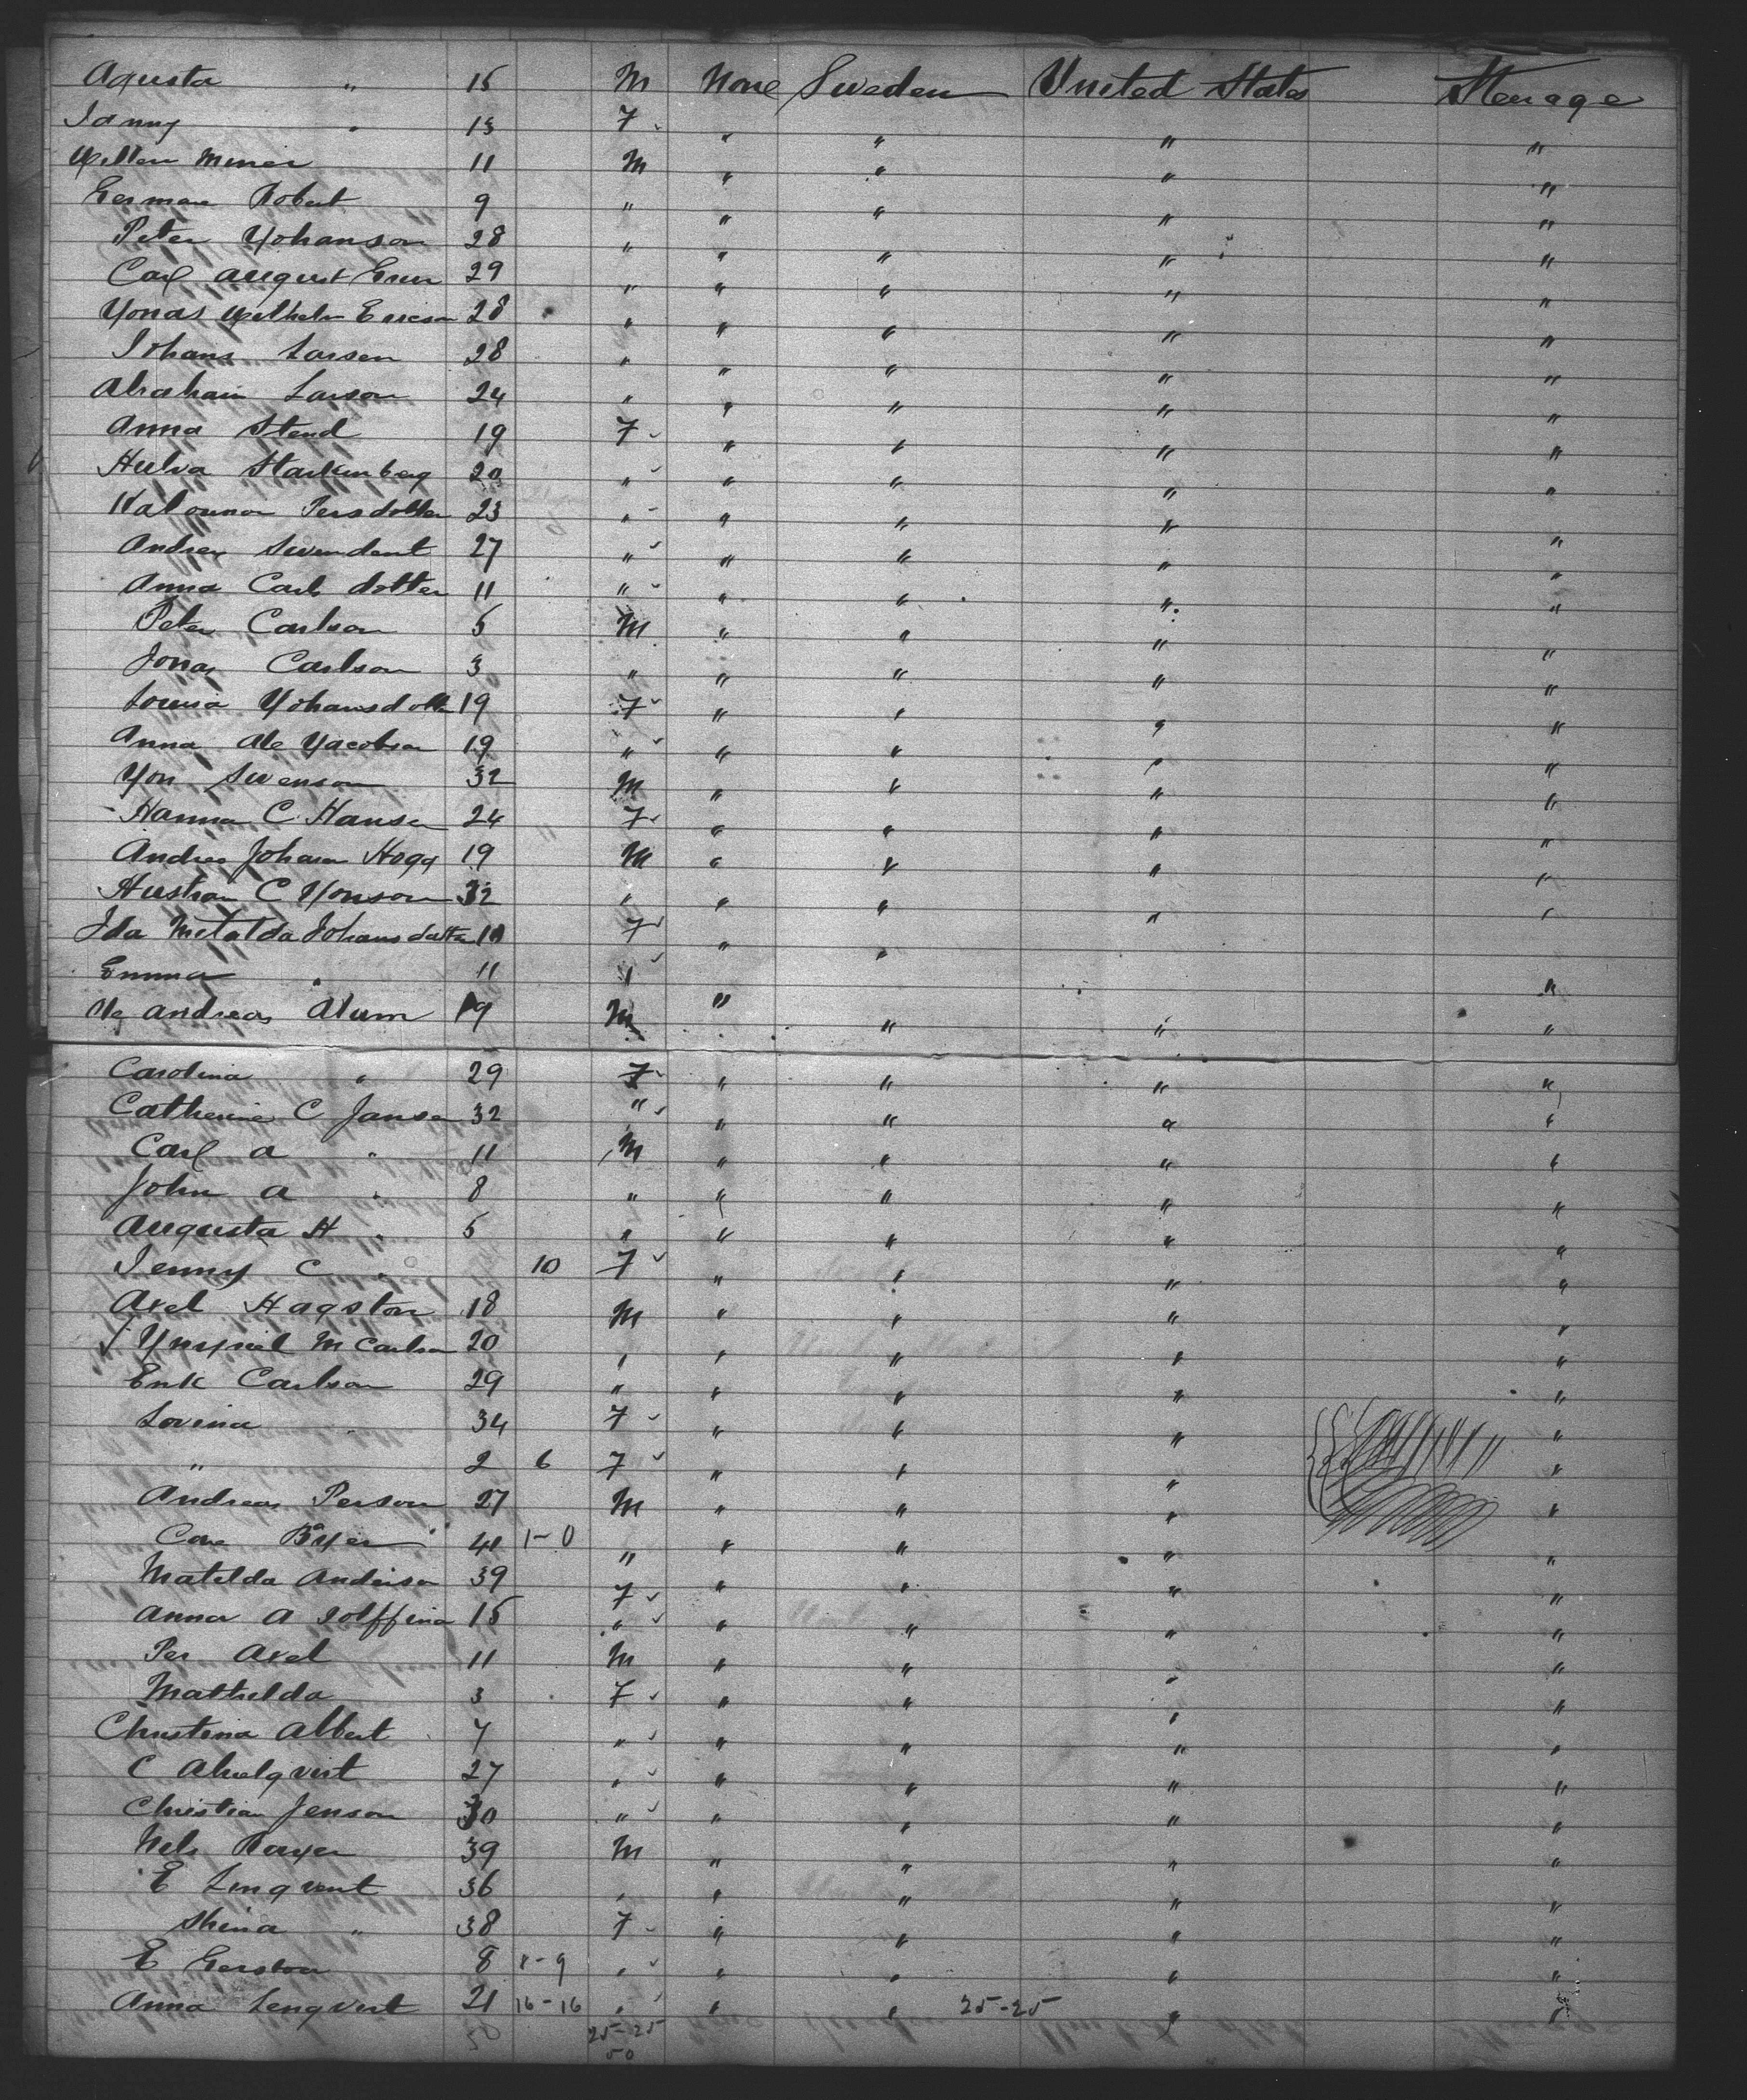 Agusta " 15 M None Sweden United States Steerage
Janny " 13 F " " " "
11 M " " " "
Herman Robert 9 " " " " "
Peter Yohanson 28 " " " " "
Carl August 29 " " " " "
Yonas Wilhelm Ericson 28 " " " " "
Johans Larsen 28 " " " " "
Abraham Larson 24 " " " " "
Anna Stend 19 F " " " "
Starkenberg 20 " " " " "
Persdotter 23 " " " " "
Andrea 27 " " " " "
Anna Carls dotter 11 " " " " "
Peter Carlson 5 M " " " "
Jonas Carlson 3 " " " " "
Lovisa Yohansdotter 19 F " " " "
Anna Yacobson 19 " " " " "
Yon Swenson 32 M " " " "
Hanna C Hansen 24 F " " " "
Andrea Johan Hogg 19 M " " " "
C Yonson 32 " " " " "
Ida Metalda Johansdatter F " "
Emma " 11 " "
Andreas Alum 19 M " " " "
Carolina " 29 F " " " "
Catherine C Jansen 32 " " " " "
Carl A " 11 M " " " "
John A " 8 " " " " "
Augusta H " 5 " " " " "
Jenny C " 10 F " " " "
Axel Hagston 18 M " " " "
M Carlson 20 " " " " "
Erik Carlson 29 " " " " "
Lovina 34 F " " " "
" 2 6 F " " " "
Andreas Person 27 M " " " "
41 1-0 " " " " "
Matelda Anderson 39 F " " " "
Anna A 15 " " " " "
Per Axel 11 M " " " "
Mathelda 3 F " " " "
Christina Albert 7 " " " " "
C Ahelqvist 27 " " " " "
Christian Jenson 30 " " " " "
Nels 39 M " " " "
E Linqvist 36 " " " " "
" 38 F " " " "
E 8 8-9 " " " " "
Anna Lenqvist 21 16-16 " " " 25-25 " "
50 25-25
50